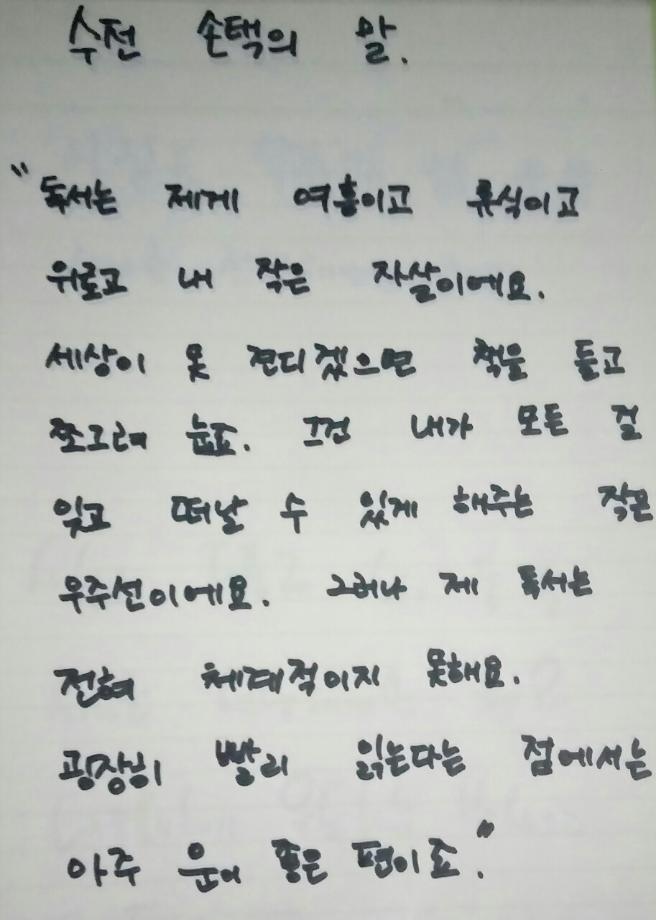 수전 손택의 말.
"독서는 제게 여흥이고 휴식이고
위로고 내 작은 자살이에요.
세상이 못 견디겠으면 책을 들고
쪼그려 눕죠. 그건 내가 모든 걸
잊고 떠날 수 있게 해주는 작은
우주선이에요. 그러나 제 독서는
전혀 체계적이지 못해요.
굉장히 빨리 읽는다는 점에서는
아주 운이 좋은 편이죠."